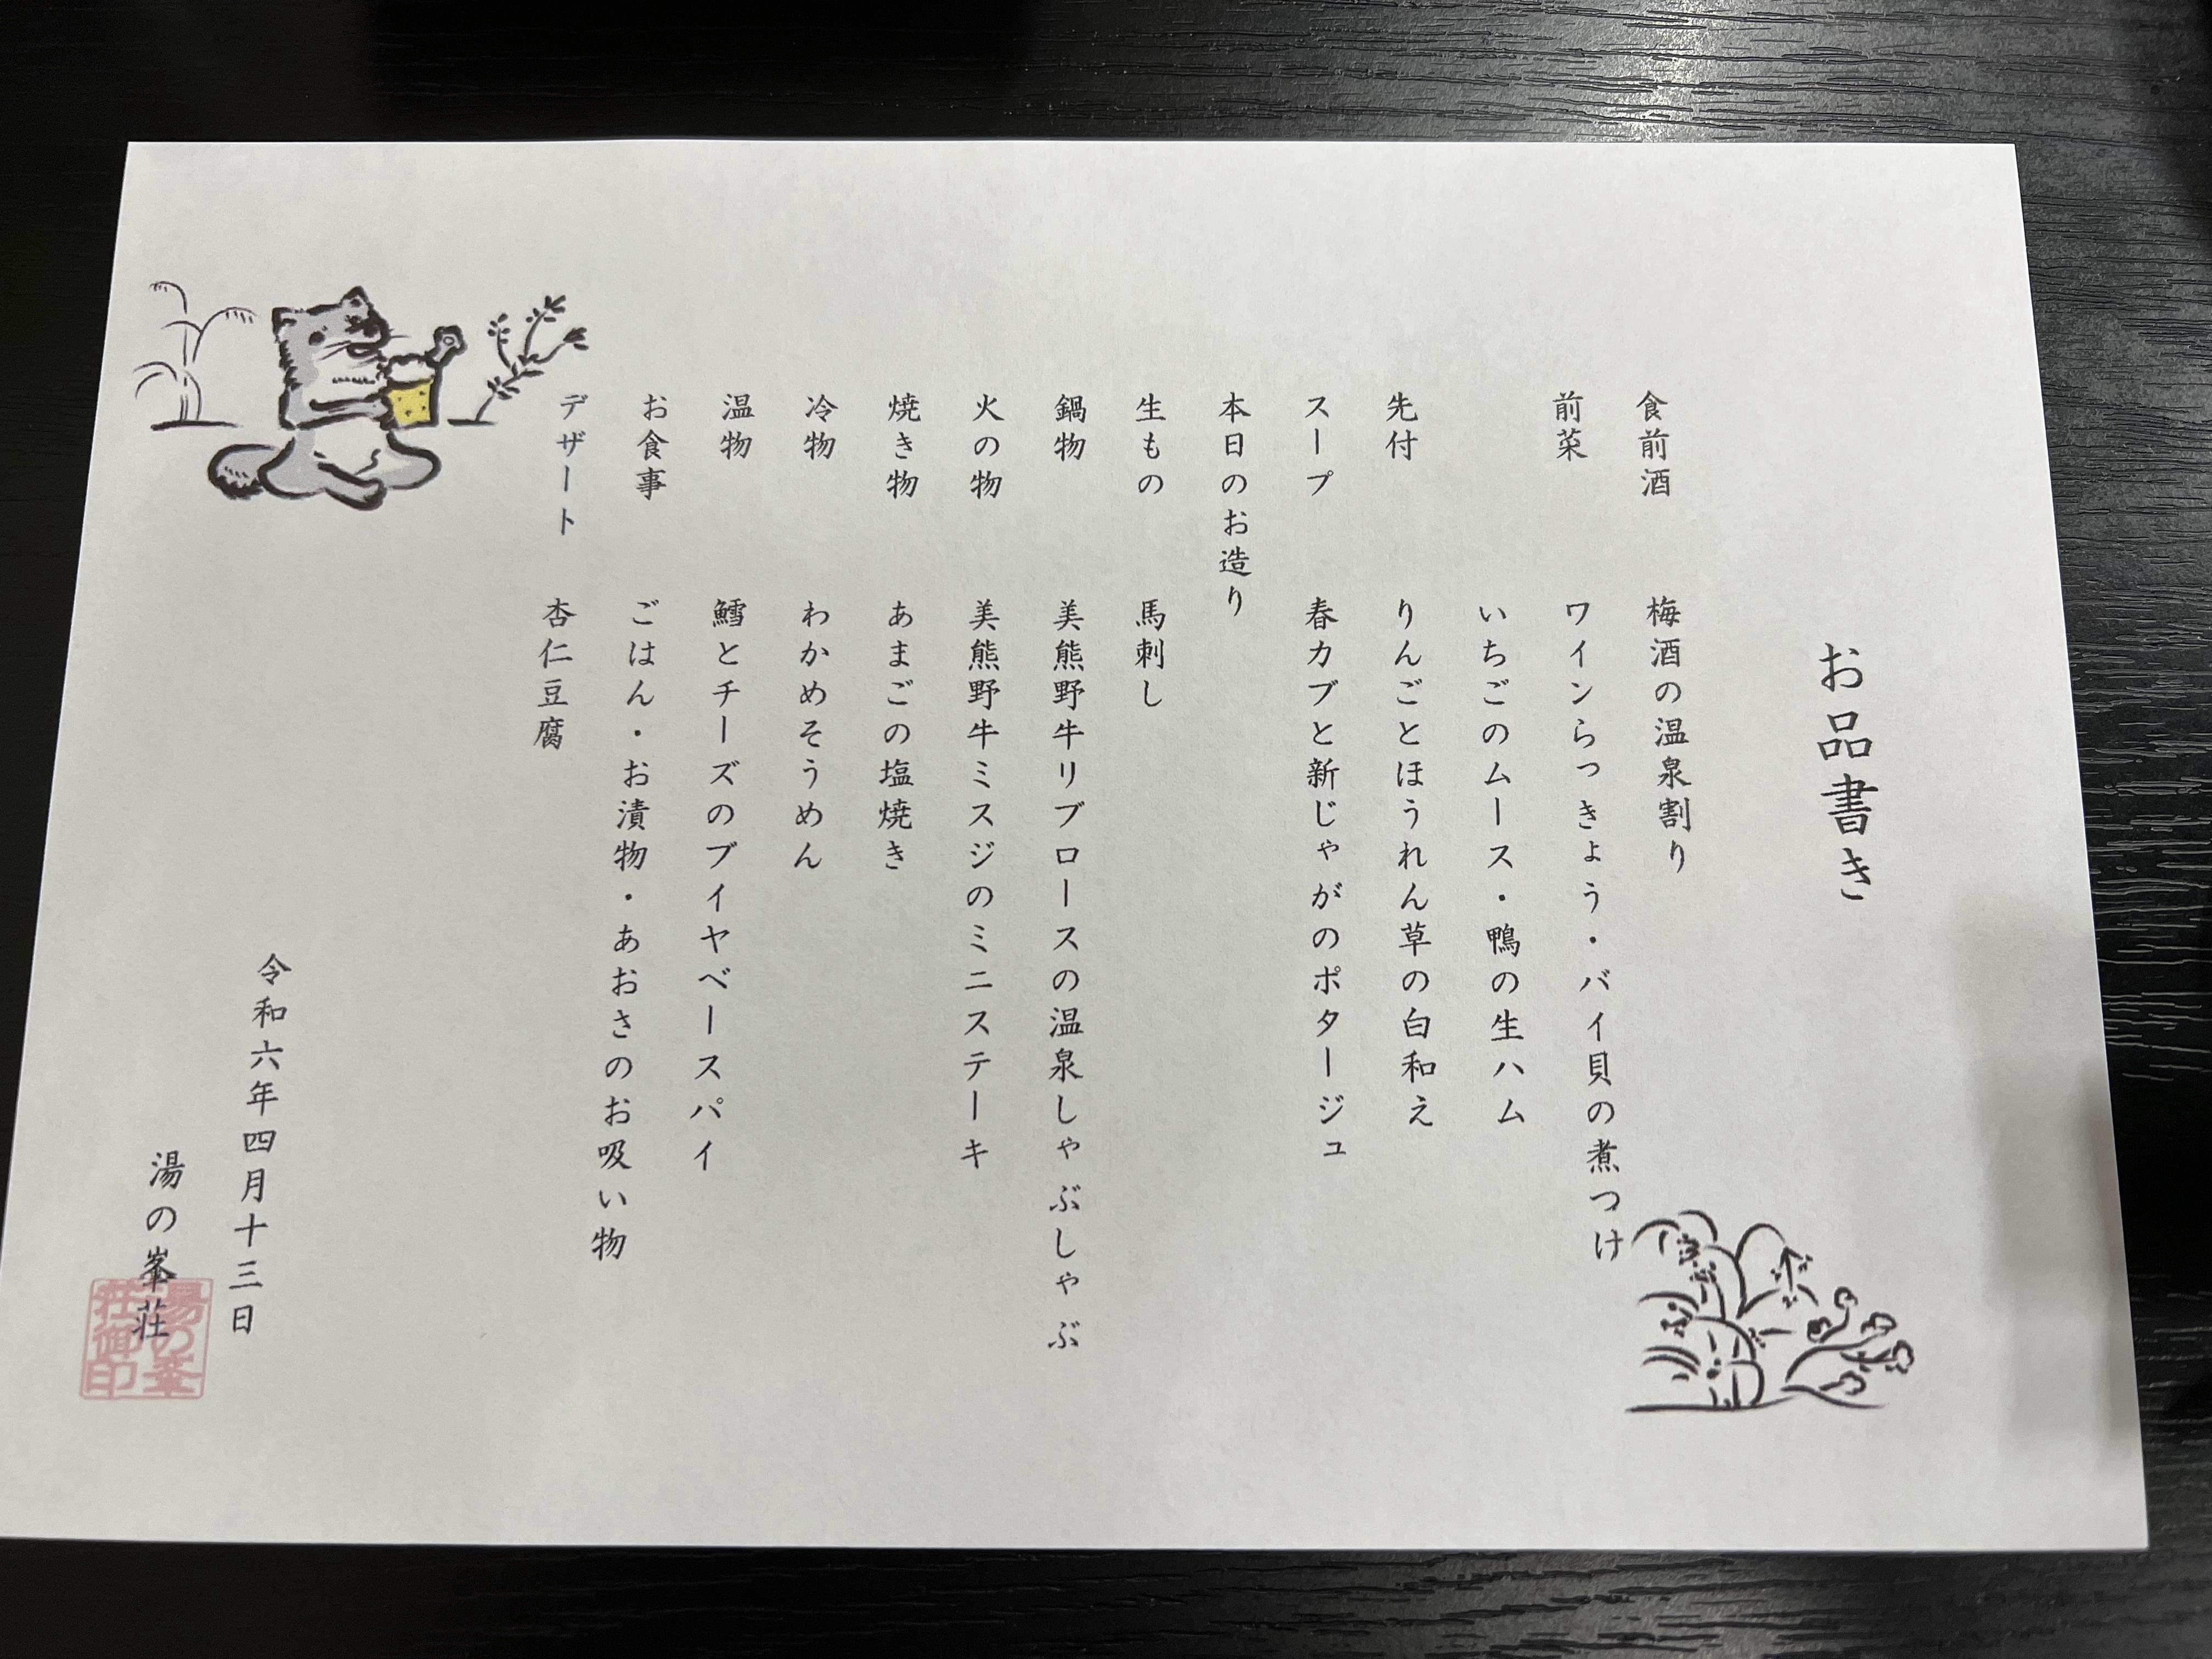 お品書き
食前酒　梅酒の温泉割り
前菜　ワインらっきょう・バイ貝の煮つけ
いちごのムース・鴨の生ハム
先付　りんごとほうれん草の白和え
スープ　春カブと新じゃがのポタージュ
本日のお造り
生もの　馬刺し
鍋物　美熊野牛リブロースの温泉しゃぶしゃぶ
火の物　美熊野牛ミスジのミニステーキ
焼き物　あまごの塩焼き
冷物　わかめそうめん
温物　鱈とチーズのブイヤベースパイ
お食事　ごはん・お漬物・あおさのお吸い物
デザート　杏仁豆腐
令和六年四月十三日
湯の峯荘
湯の峯
荘御印